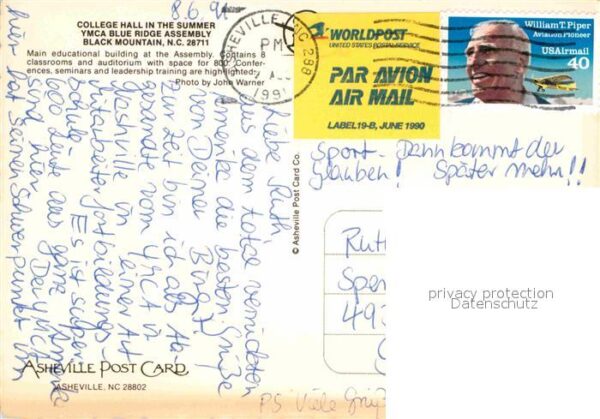 8.6.91
COLLEGE HALL IN THE SUMMER
YMCA BLUE RIDGE ASSEMBLY
BLACK MOUNTAIN, N.C. 28711
Main educational building at the Assembly. Contains 8
classrooms and auditorium with space for 800. Confer-
ences, seminars and leadership training are highlighted.
Photo by John Warner
ASHEVILLE NC 288
PM
1991
WORLDPOST
UNITED STATES POSTAL SERVICE
PAR AVION
AIR MAIL
LABEL 19-B, JUNE 1990
William T. Piper
Aviation Pioneer
USAirmail
40
Liebe Ruth,
aus dem total verrückten
Amerika die besten Grüße
von Deiner Birgit.
Zur Zeit bin ich als Ab-
gesandte vom YMCA in
Nashville in einer Art
Mitarbeiterfortbildungs-
schule. Es ist super-
1000 Leute aus ganz Amerika
sind hier. Der YMCA
hier hat seinen Schwerpunkt im
Sport- Dann kommt der
Glauben! Später mehr!!
© Asheville Post Card Co.
Spen
493
privacy protection
Datenschutz
ASHEVILLE POST CARD
ASHEVILLE, NC 28802
PS Viele Grüß